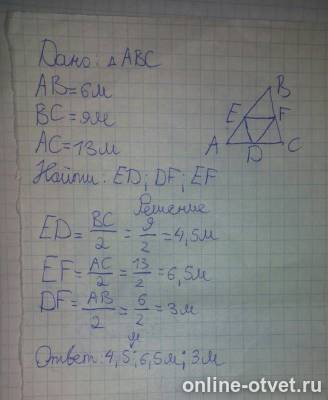 Дано: △ABC
AB=6м
BC=9м
AC=13м
Найти: ED; DF; EF
B
E
F
A
D
C
Решение
ED= BC/2 = 9/2 =4,5м
EF= AC/2 = 13/2 =6,5м
DF= AB/2 = 6/2 =3м
м
Ответ: 4,5; 6,5м; 3м
online-otvet.ru